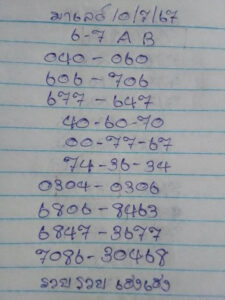 มาเลย์ 10/7/67
6-7 A B
040-060
606-706
677-647
40-60-70
00-77-67
74-36-34
0304-0306
6806-8463
6847-3677
7086-30468
รวย รวย เฮงเฮง